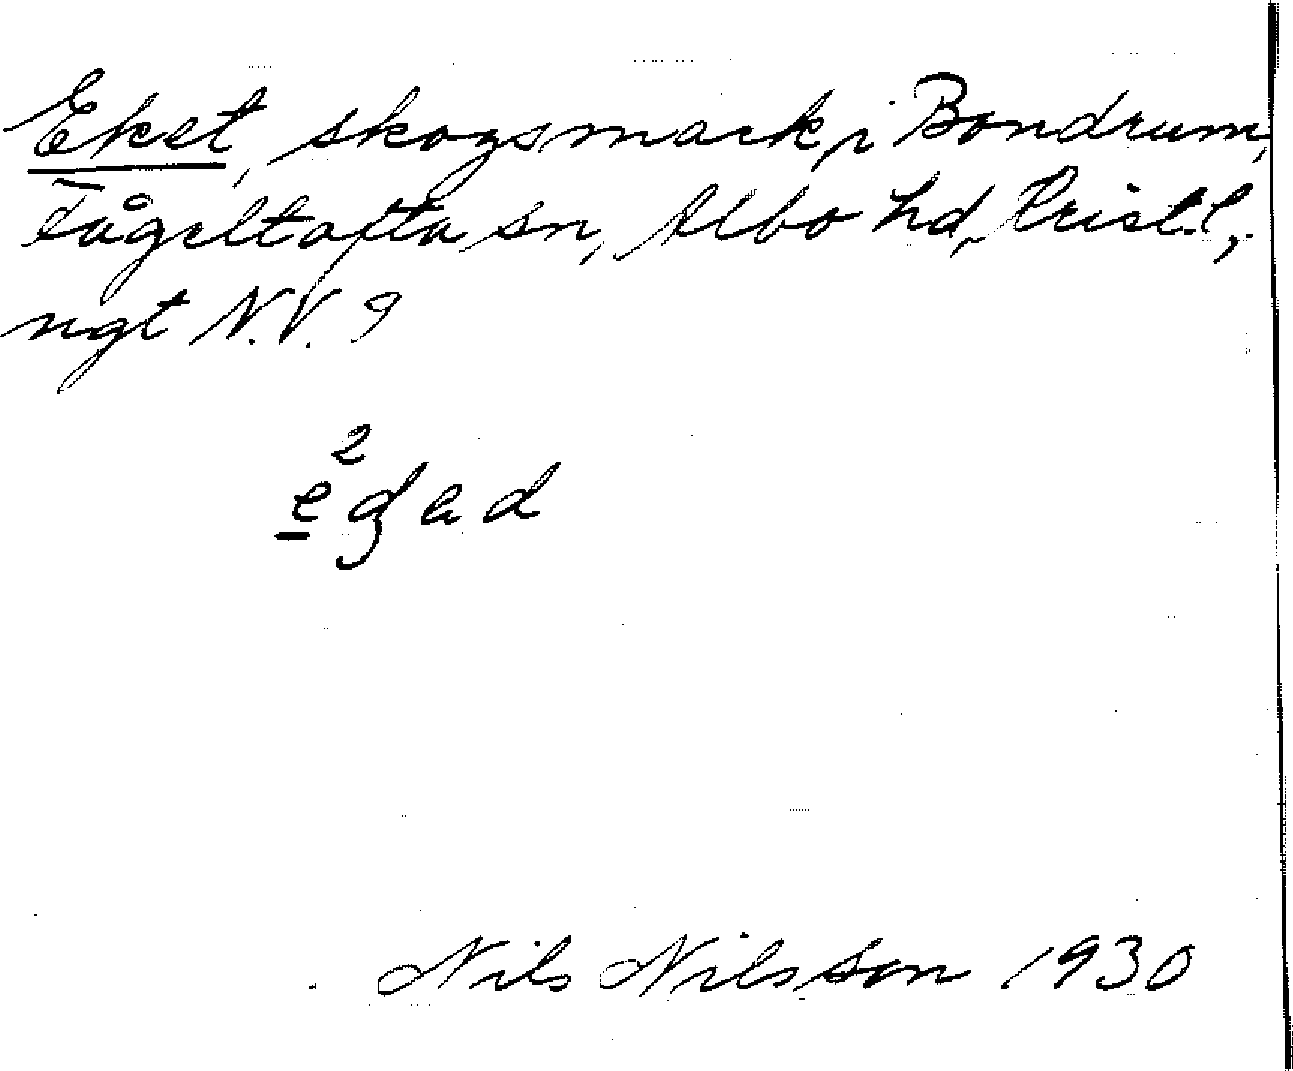 Eket, skogsmark, i Bondrum,
Fågeltofta sn, Albo hd, Krist.l,
ngt N.V. 9
2
Nils Nilsson 1930